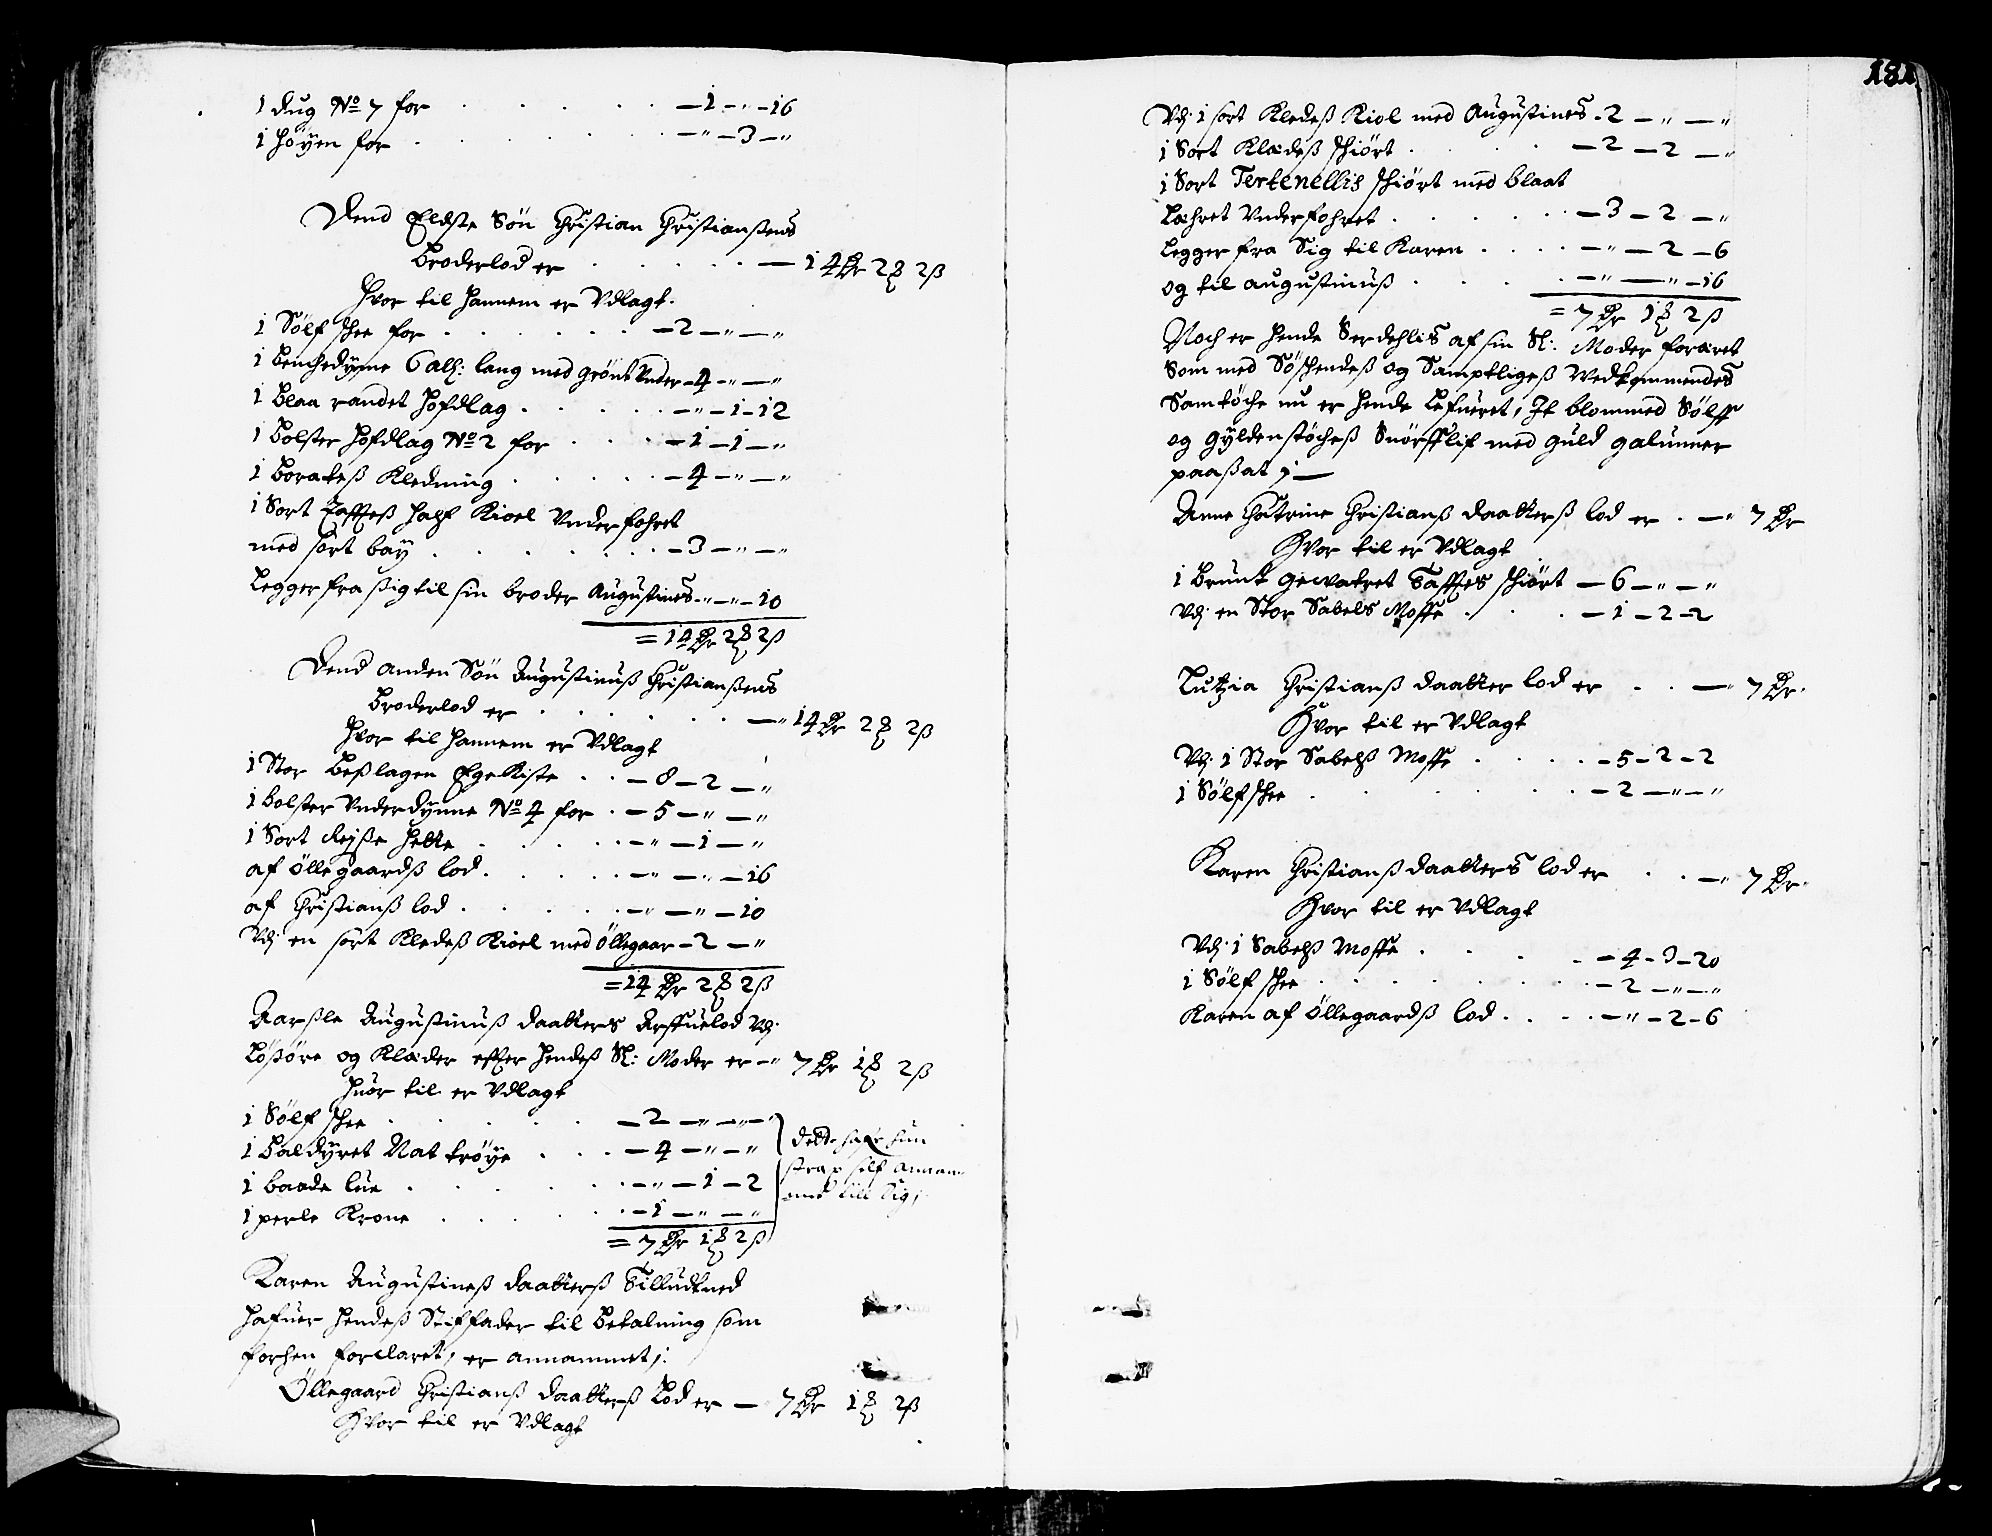 1 dug No 7 for . . . . . — 1 — " — 16
1 höyen for . . . . . — " — 3 — "
Dend Eldste Sön Christian Christianßens
broderlod er . . . . — 14 Dr 2 ß 2 ß
Hvor til hannem er Vdlagt.
1 Sölf skee for . . . . . — 2 — " — "
1 benchedynne 6 all: lang med grönt Vnder — 4 — " — "
1 blaa randet hofdlag . . . . — " — 1 — 12
1 bolster hofdlag No 2 for . . . — 1 — 1 — "
1 borakeß Kledning . . . . . — 4 — " — "
1 Sort Taftes half Kioel Vnderfohret
med sort bay . . . . . . — 3 — " — "
Legger fra ßig til sin broder Augustines — " — " — 10
= 14 Dr 2 ß 2 ß
Dend anden Sön Augustinuß Christianßens
broderlod er . . . . . — " 14 Dr 2 ß 2 ß
Hvor til hannem er Vdlagt
1 Stor beßlagen Ege Kiste . . — 8 — 2 — "
1 bolster Vnderdynne No 4 for . — 5 — " — "
1 Sort Reyße hette . . . . — " — 1 — "
af Öllegaardß lod . . . . — " — " — 16
af Christianß lod . . . . — " — " — 10
Vdj en sort Kledeß Kioel med Öllegaar — 2 — "
= 14 Dr 2 ß 2 ß
Aarßle Augustinuß daatters Arffuelod Vdj
Lößöre og Klæder efter hendeß Sl: Moder er — " 7 Dr 1 ß 2 ß
huor til er Vdlagt
1 Sölf skee . . . . . — 2 — " — "
1 baldyret Nat tröye . . . — 4 — " — "
1 baade lue . . . . . — " — 1 — 2
1 perle Krone . . . . — 1 — " — "
dette hafr hun
strax self annam-
met till sig;
= 7 Dr 1 ß 2 ß
Karen Augustineß daatterß
hafuer hendeß Stiffader til betalning som
forhen forclaret, er annammet;
Öllegaard Christianß daatterß Lod er — 7 Dr 1 ß 2 ß
Hvor til er Vdlagt
181
Vdj 1 sort Kledeß Kiol med Augustines — 2 — " — "
1 Sort Klædeß skiört . . . — 2 — 2 — "
1 Sort Tertenellis skiört med blaat
Lærret Vnderfohret . . . . — 3 — 2 — "
Legger fra Sig til Karen . . . — " — 2 — 6
og til augustinuß . . . . — " — " — 16
= 7 Dr 1 ß 2 ß
Noch er hende Serdehlis af sin Sl: Moder foræret
Som med Söskendeß og Samptligeß Wedkommendes
Samtöche nu er hende Lefueret, It blommed Sölff
og gyldenstöcheß Snörsslif med guld galunner
paaßat ;
Anne Chatrine Christianß daatterß lod er . — " 7 Dr
Hvor til er Vdlagt
1 brunt gewatret Taftes skiört — 6 — " — "
Vdj en Stor Sabels Moffe . . . — 1 — 2 — 2
Lutzia Christianß daatter lod er . . — " 7 Dr.
Hvor til er Vdlagt
Vdj 1 Stor Sabelß Moffe . . . . — 5 — 2 — 2
1 Sölf skee . . . . . . — 2 — " — "
Karen Christianß daatters lod er . . — " 7 Dr.
Hvor til er Vdlagt
Vdj 1 Sabelß Moffe . . . . — 4 — 3 — 20
1 Sölf skee . . . . . . — 2 — " — "
Karen af Öllegaardß lod . . . . — " — 2 — 6